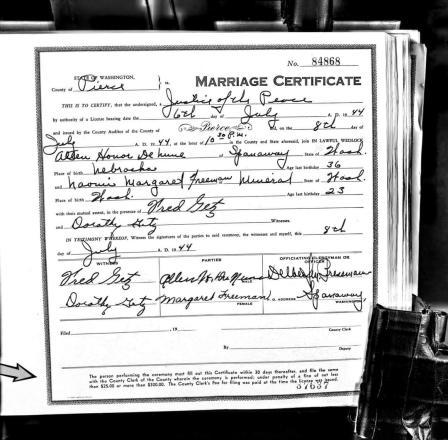 No. 84868
STATE OF WASHINGTON,
County of Pierce } ss.
MARRIAGE CERTIFICATE
THIS IS TO CERTIFY, that the undersigned, a Justice of the Peace
by authority of a License bearing date the 6th day of July A. D. 1944
and issued by the County Auditor of the County of Pierce did, on the 8th day of
July A. D. 1944, at the hour of 10 30 P.M. in the County and State aforesaid, join IN LAWFUL WEDLOCK
Honor of Spanaway State of Wash.
Place of birth Nebraska Age last birthday 36
and Naomi Margaret Freeman Mineral State of Wash.
Place of birth Wash. Age last birthday 23
with their mutual assent, in the presence of Fred Getz
and Dorothy Getz Witnesses.
IN TESTIMONY WHEREOF, Witness the signatures of the parties to said ceremony, the witnesses and myself, this 8th
day of July A. D. 1944
WITNESS PARTIES OFFICIATING CLERGYMAN OR OFFICER
Fred Getz MALE Freeman
Dorothy Getz Margaret Freeman FEMALE P. O. ADDRESS Spanaway, WASHINGTON
Filed 19 County Clerk
By Deputy
The person performing the ceremony must fill out this Certificate within 30 days thereafter, and file the same
with the County Clerk of the County wherein the ceremony is performed; under penalty of a fine of not less
than $25.00 or more than $300.00. The County Clerk's Fee for filing was paid at the time the license was issued.
37637